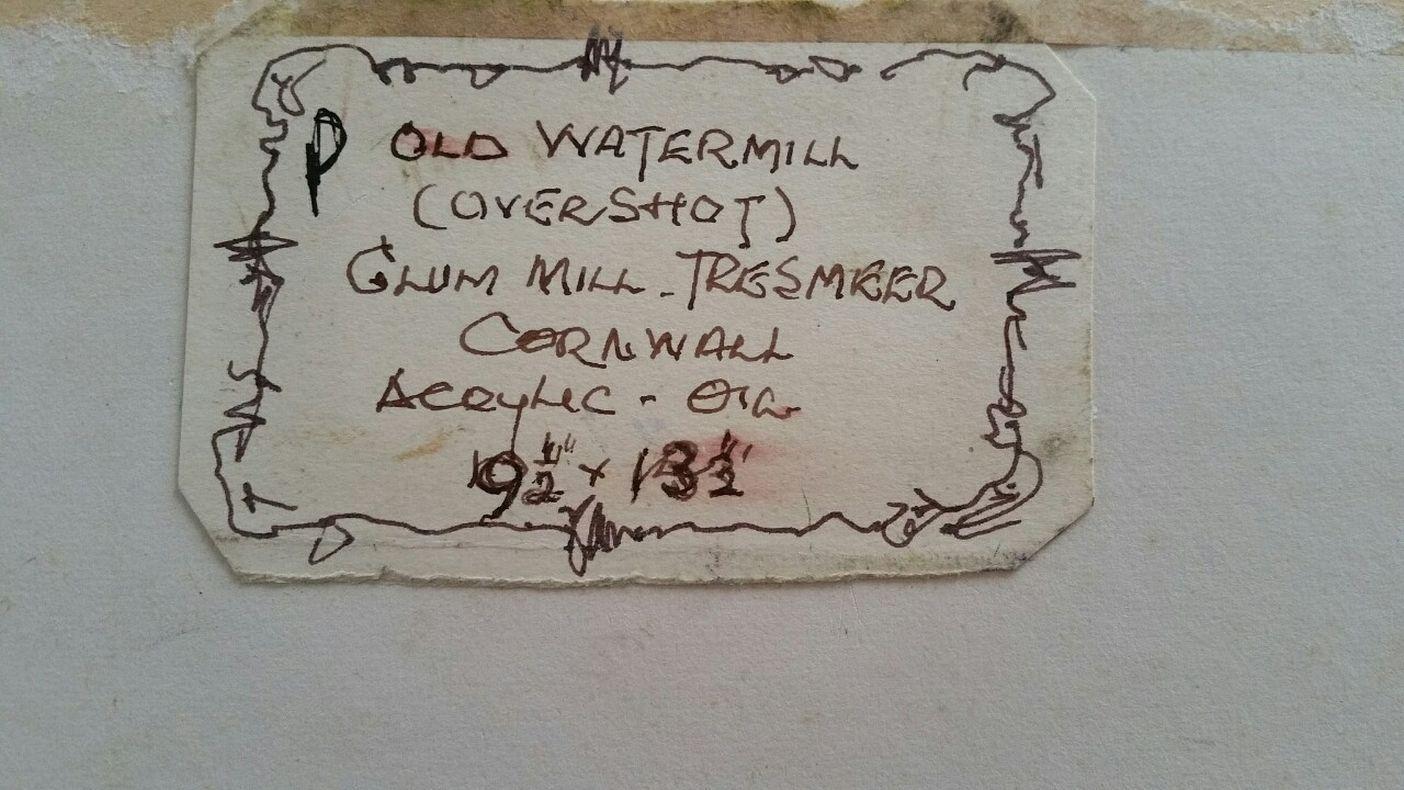 P OLD WATERMILL
(OVERSHOT)
GLUM MILL - TRESMEER
CORNWALL
ACRYLIC - OIL
9 1/2" x 13 1/2"